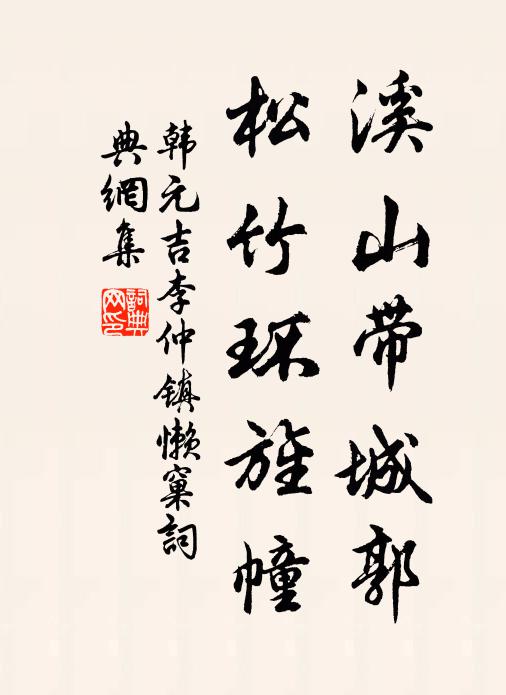 溪山带城郭
松竹环旌幢
韩元吉李仲镇懒窠詞
典網集
詞典網印